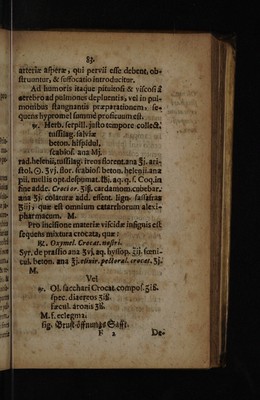 83.
arteriæ asperæ, qui pervii esse debent, ob-
struuntur, & suffocatio introducitur.
Ad humoris itaque pituitosi & viscosi à
cerebro ad pulmones depluentis, vel in pul-
monibus stagnantis præparationem, se-
quens hypromel summè proficuum est.
℞. Herb. serpill. justo tempore collect.
tussilag. salviæ
beton. hispidul.
scabios. ana Mj.
rad. helenii, tussilag: ireos florent. ana ℥j. ari-
stol. ʘ. ʒvj. flor. scabios. beton. helenii. ana
pii. mellis opt. despumat. ℔j. aq. q. s. Coq. in
fine adde. Croci or. ʒiß. cardamom. cubebar.
ana ʒj. colaturæ add. essent. lign. sassafras
quæ est omnium catarrhorum alexi-
pharmacum. M.
Pro incisione materiæ viscidæ insignis est
sequens mixtura crocata, quæ:
℞. Oxymel. Crocat. nostri.
Syr. de prassio ana ʒvj. aq. hyssop. ℥ij. fœni-
cul. beton. ana ℥j. elixir. pectoral. crocat. ʒj.
M.
Vel
℞. Ol. sacchari Crocat. compos. ʒiß.
spec. diaereos ʒiß.
fæcul. aronis ʒß.
M. f. eclegma.
sig. Brust-öffnungs Safft.
F 2 De-